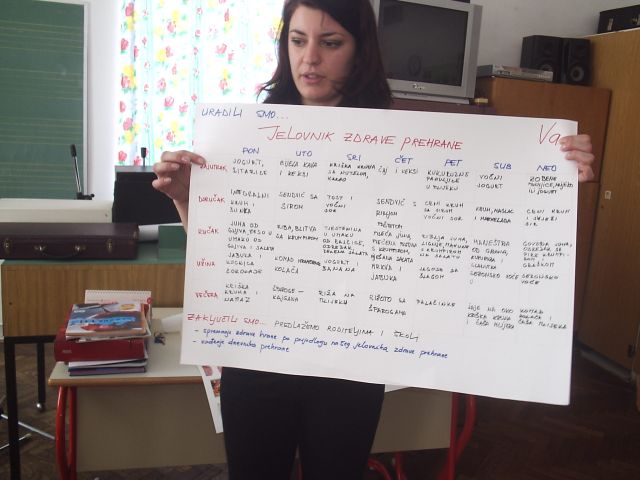 URADILI SMO...
JELOVNIK ZDRAVE PREHRANE
Va
PON UTO SRI ČET PET SUB NED
ZAJUTRAK
JOGURT,
ŽITARICE
BIJELA KAVA
I KEKSI
KRIŠKA KRUHA
SA NUTELOM,
KAKAO
ČAJ I KEKSI
KUKURUZNE
PAHULJICE
U MLIJEKU
VOĆNI
JOGURT
ZOBENE
PAHULJICE, MLIJEKO
ILI JOGURT
DORUČAK
INTEGRALNI
KRUH I
ŠUNKA
SENDVIČ SA
SIROM
TOST I
VOĆNI
SOK
SENDVIČ S
RIBLJOM
PAŠTETOM
CRNI KRUH
SA SIROM
VOĆNI SOK
KRUH, MASLAC
I MARMELADA
CRNI KRUH
I SVJEŽI
SIR
RUČAK
JUHA OD
GLJIVA, MESO U
UMAKU OD
GLJIVA I SALATA
RIBA, BLITVA
SA KRUMPIROM
TJESTENINA
U UMAKU
OD RAJČICE,
ODREZAK,
ZELENA SALATA
PILEĆA JUHA,
PEČENA PILETINA
S KRUMPIROM,
MJEŠANA SALATA
RIBLJA JUHA,
LIGNJE, MAHUNE
S KRUMPIROM
NA SALATU
MANEŠTRA
OD GRAHA,
KUKURUZA I
SLANUTKA
GOVEĐA JUHA,
ODREZAK SA
PIRE KRUMPI-
ROM I
GRAŠKOM
UŽINA
JABUKA I
KOCKICA
ČOKOLADE
KOMAD
KOLAČA
JOGURT I
BANANA
MRKVA I
JABUKA
JAGODE SA
ŠLAGOM
SEZONSKO VOĆE
SEZONSKO
VOĆE
VEČERA
KRIŠKA
KRUHA I
NAMAZ
ŠPAROGE -
KAJGANA
RIŽA NA
MLIJEKU
RIŽOTO SA
ŠPAROGAMA
PALAČINKE
JAJE NA OKO
KRIŠKA KRUHA
I ČAŠA MLIJEKA
KOMAD
KOLAČA I
ČAŠA MLIJEKA
ZAKLJUČILI SMO... PREDLAŽEMO RODITELJIMA I ŠKOLI
- spremanje zdrave hrane po prijedlogu našeg jelovnika zdrave prehrane
- vođenje dnevnika prehrane